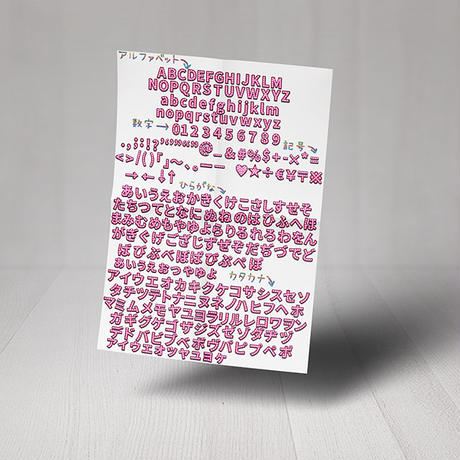 アルファベット
ABCDEFGHIJKLM
NOPQRSTUVWXYZ
abcdefghijklm
nopqrstuvwxyz
数字→0123456789
記号
.,;:!?'"'"“”@_&#%$+-×*=
<>/()「」〜、。ー— ♥☆÷€¥〒※
→←↓↑
ひらがな
あいうえおかきくけこさしすせそ
たちつてとなにぬねのはひふへほ
まみむめもやゆよらりるれろわをん
がぎぐげござじずぜぞだぢづでど
ばびぶべぼぱぴぷぺぽ
ぁぃぅぇぉっゃゅょ
カタカナ
アイウエオカキクケコサシスセソ
タチツテトナニヌネノハヒフヘホ
マミムメモヤユヨラリルレロワヲン
ガギグゲゴザジズゼゾダヂヅ
デドバビブベボヴパピプペポ
ァィゥェォッャュョヶ